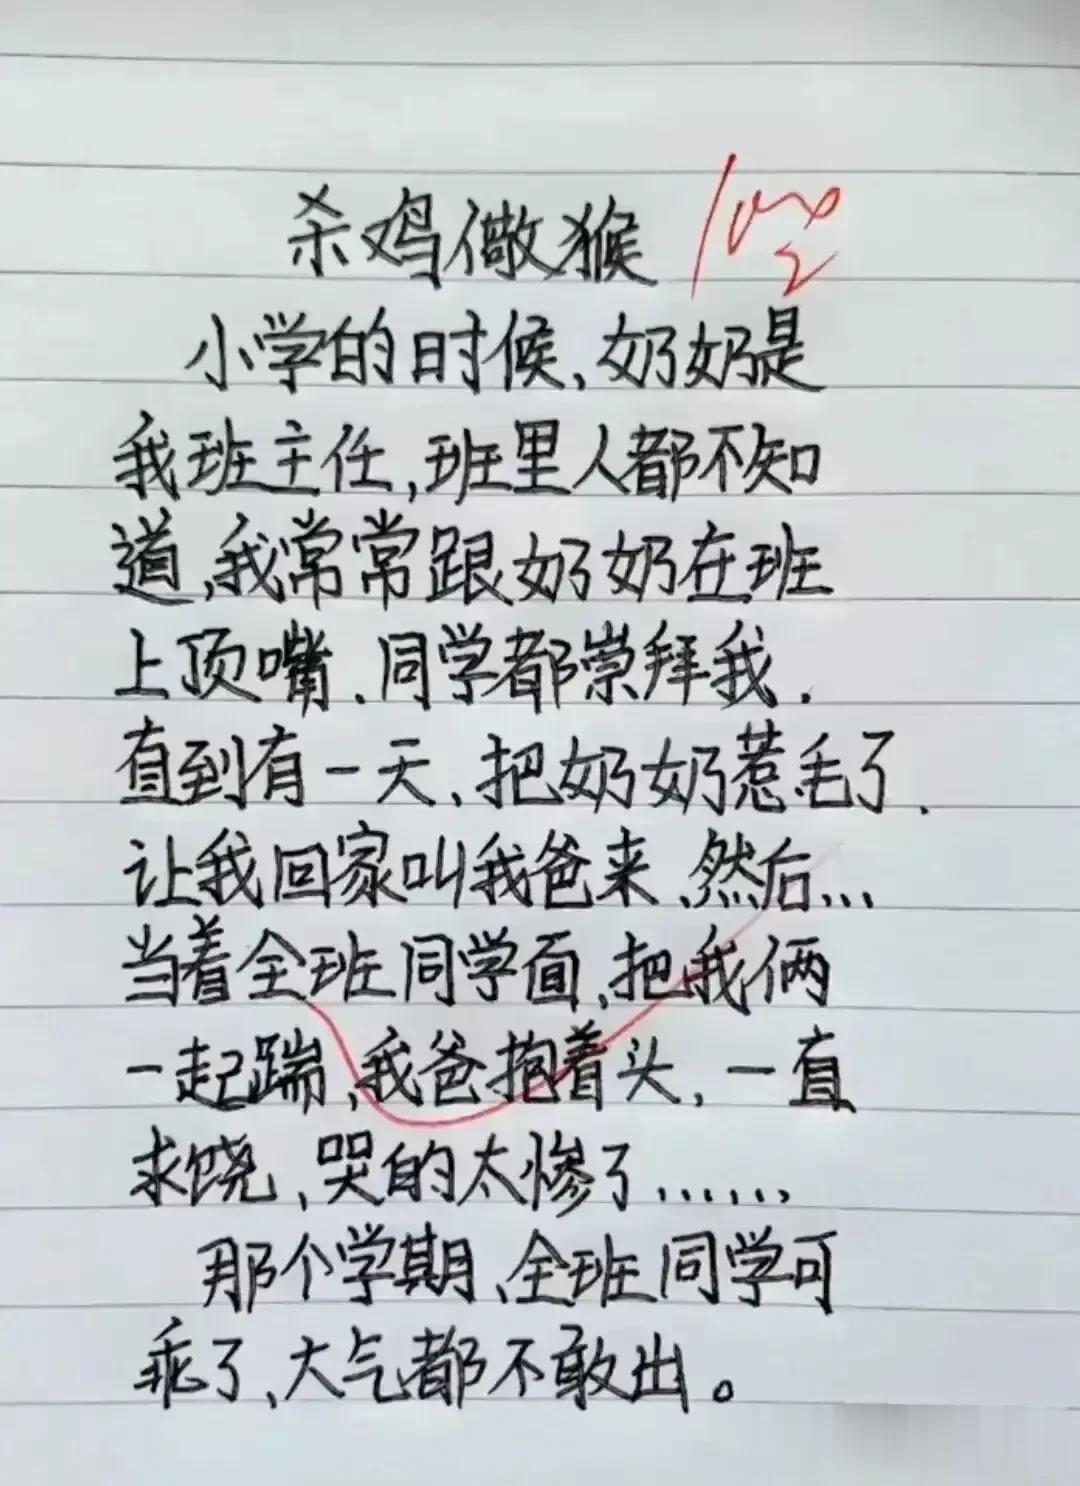 杀鸡儆猴 100
小学的时候,奶奶是
我班主任,班里人都不知
道,我常常跟奶奶在班
上顶嘴、同学都崇拜我.
直到有一天、把奶奶惹毛了.
让我回家叫我爸来、然后...
当着全班同学面,把我俩
一起踹,我爸抱着头,一直
求饶,哭的太惨了......
那个学期、全班同学可
乖了、大气都不敢出。